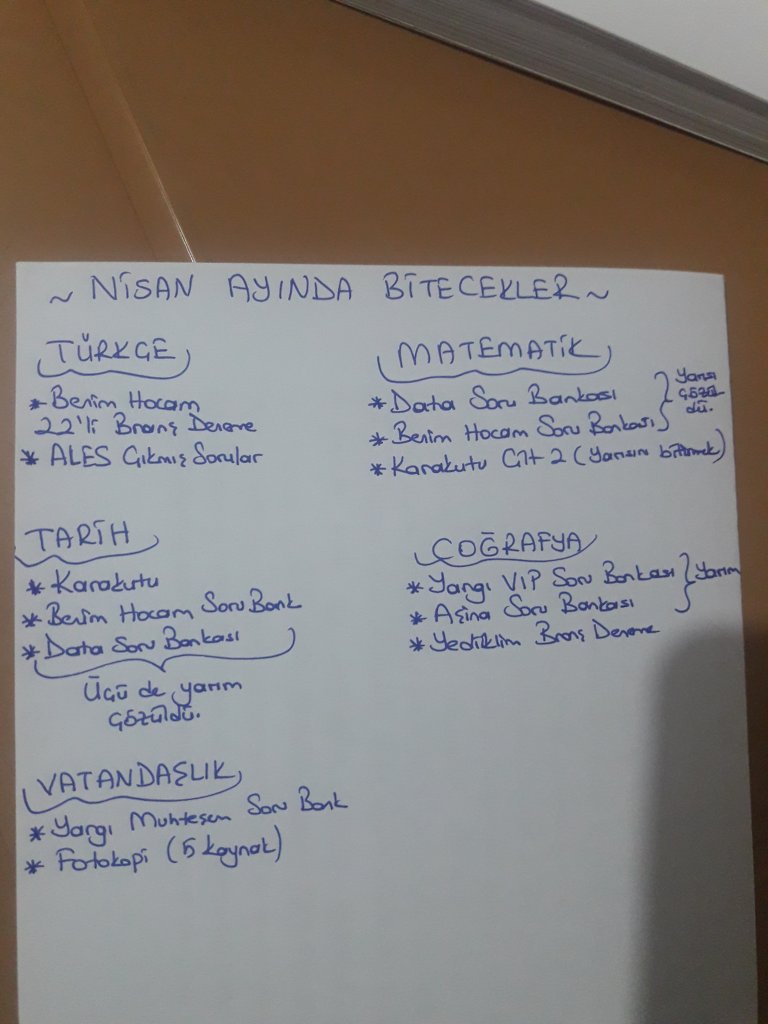 ~ NİSAN AYINDA BİTECEKLER ~
TÜRKÇE
* Benim Hocam
22'li Branş Deneme
* ALES Çıkmış Sorular
MATEMATİK
* Data Soru Bankası
* Benim Hocam Soru Bankası
Yarısı
çözül
dü.
* Karakutu Cilt 2 (Yarısını bitirmek)
TARİH
* Karakutu
* Benim Hocam Soru Bank
* Data Soru Bankası
Üçü de yarım
çözüldü.
COĞRAFYA
* Yargı VIP Soru Bankası
* Aşina Soru Bankası
Yarım
* Yediiklim Branş Deneme
VATANDAŞLIK
* Yargı Muhteşem Soru Bank
* Fotokopi (5 kaynak)